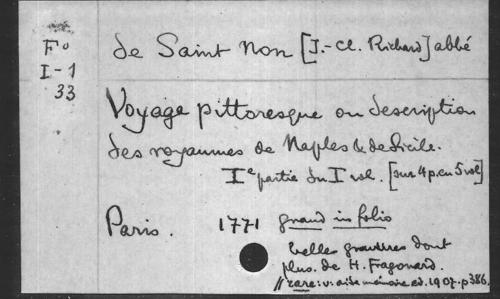 F°
I-1
33
de Saint Non [J.-Cl. Richard] abbé
Voyage pittoresque ou description
des royaumes de Naples & de Sicile.
Ie partie du I vol. [sur 4 p. en 5 vol]
Paris. 1771 grand in folio
belles gravures dont
plus. de H. Fragonard.
// rare: v: aide mémoire ed. 1907. p386.